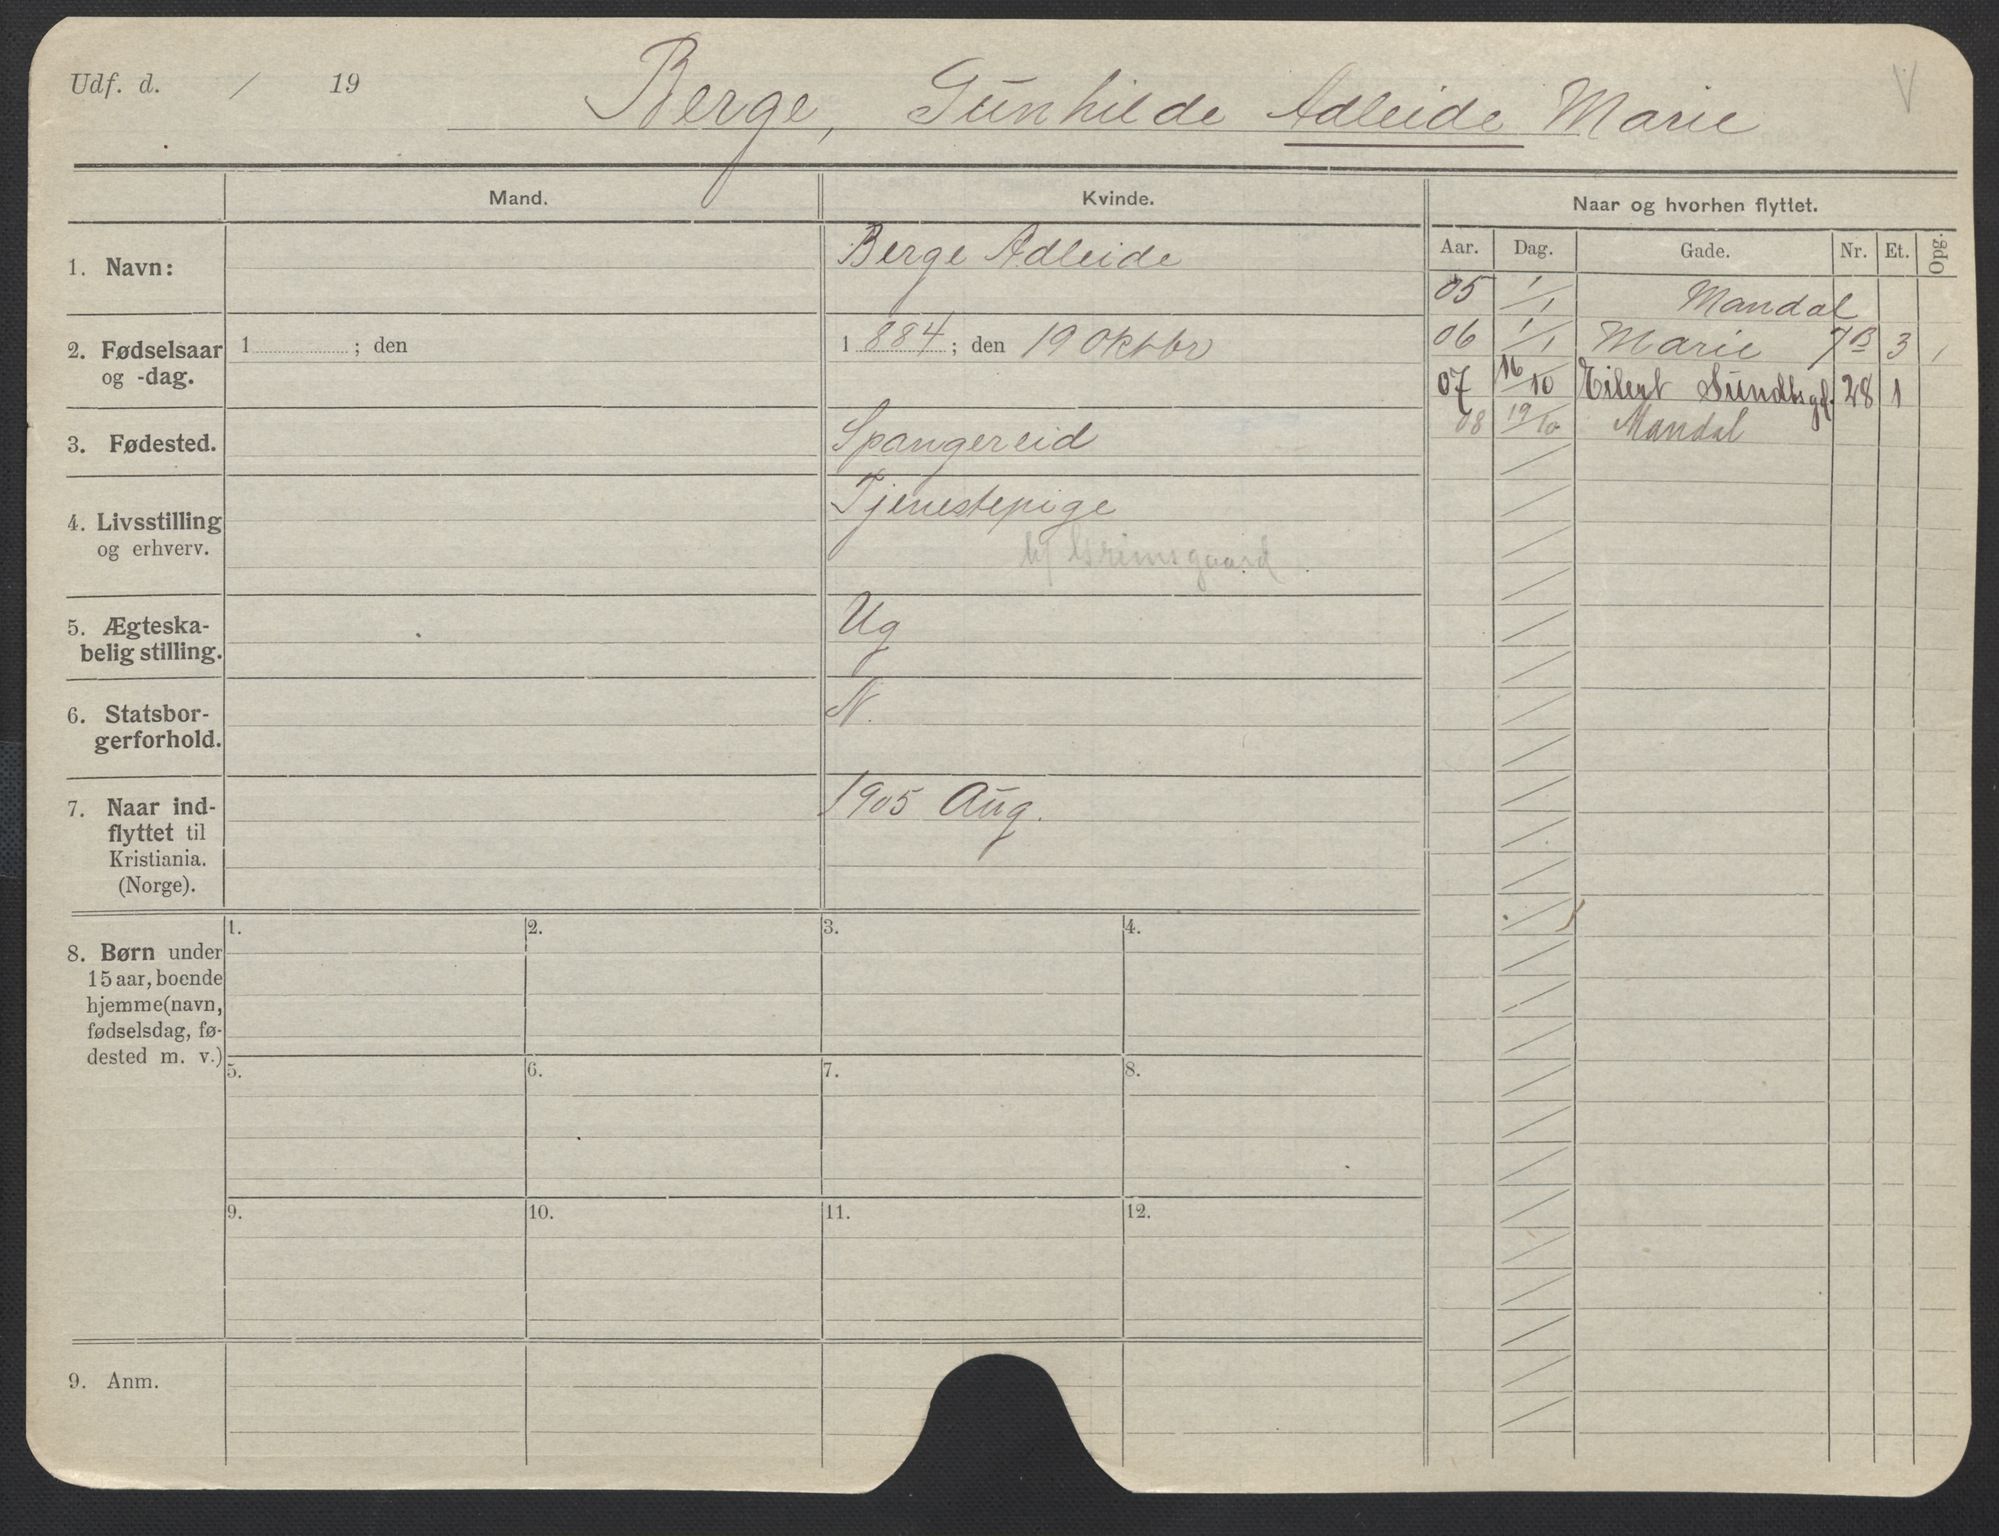 Udf. d. / 19
Berge, Gunhilde Adleide Marie
V
Mand. Kvinde. Naar og hvorhen flyttet.
Aar. Dag. Gade. Nr. Et. Opg.
1. Navn: Berge Adleide
2. Fødselsaar og -dag. 1 ; den 1 884 ; den 19 Oktbr
3. Fødested. Spangereid
4. Livsstilling og erhverv. Tjenestepige
h/ Grimsgaard
5. Ægteska-
belig stilling. Ug
6. Statsbor-
gerforhold. N.
7. Naar ind-
flyttet til
Kristiania.
(Norge). 1905 Aug.
05 1/1 Mandal
06 1/1 Marie 7B 3 1
07 16/10 Eilert Sundtsgd. 28 1
08 19/10 Mandal
8. Børn under
15 aar, boende
hjemme (navn,
fødselsdag, fø-
dested m. v.)
1. 2. 3. 4.
5. 6. 7. 8.
9. 10. 11. 12.
9. Anm.